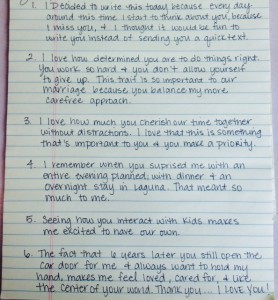 1. I Decided to write this today because every day
around this time I start to think about you, because
I miss you, & I thought it would be fun to
write you instead of sending you a quick text.
2. I love how determined you are to do things right.
You work so hard & you don't allow yourself
to give up. This trait is so important to our
marriage because you balance my more
carefree approach.
3. I love how much you cherish our time together
without distractions. I love that this is something
that's important to you & you make a priority.
4. I remember when you suprised me with an
entire evening planned, with dinner & an
overnight stay in Laguna. That meant so
much to me."
5. Seeing how you interact with kids makes
me excited to have our own.
6. The fact that 6 years later you still open the
car door for me & always want to hold my
hand, makes me feel loved, cared for, & like
the center of your world. Thank you... I love you!